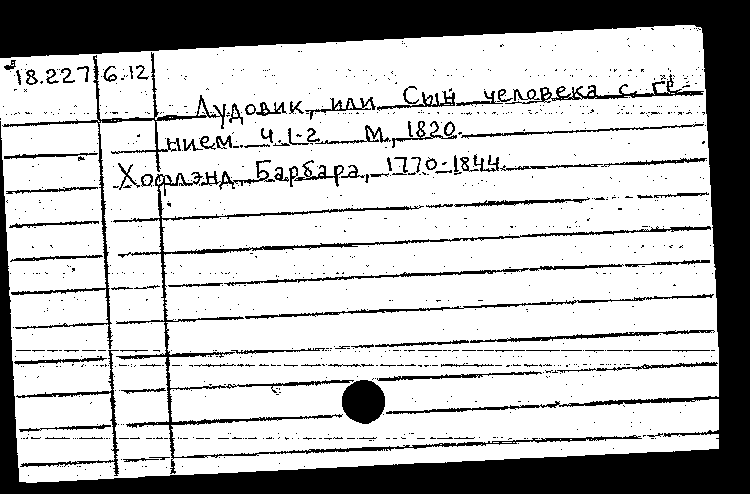 18.227 6.12
Лудовик, или Сын человека с ге-
нием Ч.1-2 М., 1820.
Хофлэнд Барбара, 1770-1844.